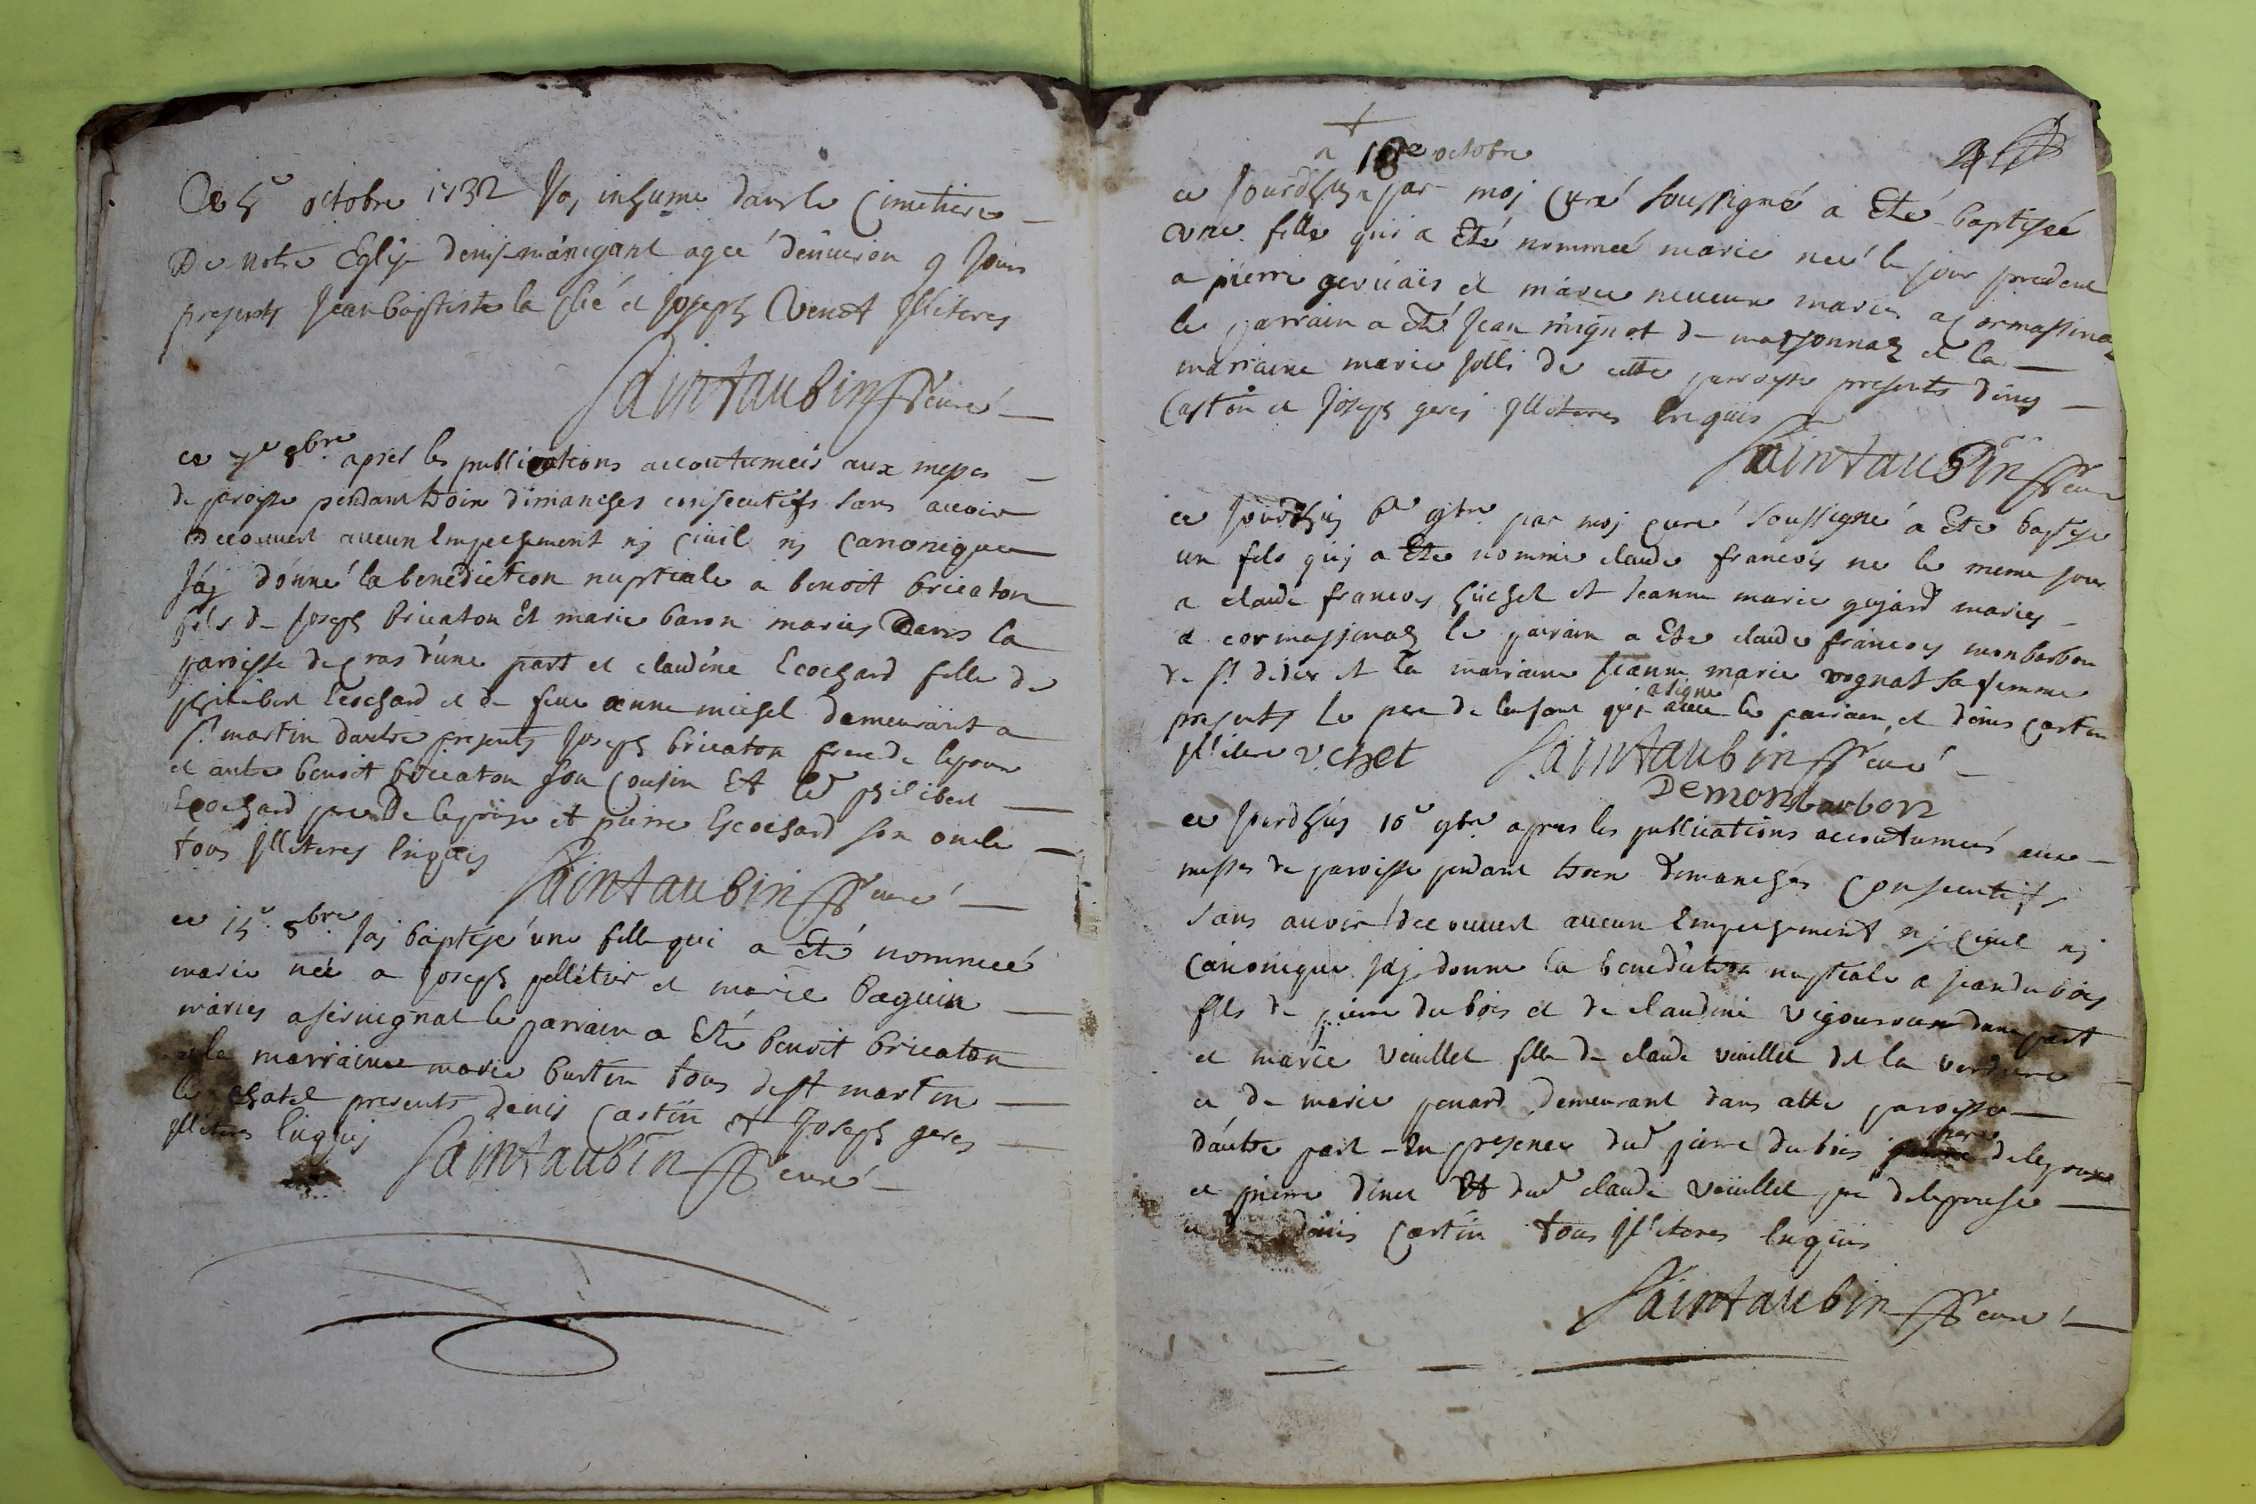 Ce 5e octobre 1732 J'ay inhumé dans le Cimetiere
De notre Eglise denise manigant agee d'environ 9 Jours
presents Jean baptiste la et Joseph Venot Illiteres
Saintaubin ptre curé
ce 7e 8bre apres les publications accoutumeés aux messes
de paroisse pendant trois dimanches consecutifs sans avoir
decouvert aucun Empechement nj Civil nj Canonique
J'aj donné la benediction nuptiale a benoit bricaton
fils de Joseph bricaton Et marie baron mariés Dans la
paroisse de cras d'une part et claudine Ecochard fille de
philibert Ecochard et de feue anne michel demeurant a
st martin d'autre presents Joseph bricaton frere de lepoux
et autre benoit bricaton son Cousin Et led philibert
Ecochard pere De lepouse et pierre Ecochard son oncle
tous Illiteres Enquis Saintaubin ptre curé
ce 15e 8bre J'aj baptisé une fille qui a Eté nommeé
marie neé a Joseph pelletier et marie baguin
mariés a servignat le parrain a Eté benoit bricaton
et la marraine marie burtin tous de st martin
le chatel presents denis Castin et Joseph geres
Illiteres Enquis Saintaubin ptre curé
a 18e octobre
ce Jourdhuy par moj Curé soussigné a Eté baptisée
une fille qui a Eté nommeé marie neé le jour precedent
a pierre gervais et marie neveue mariés a Cormassinaz
le parrain a eté Jean mignot de marsonnaz et la
marraine marie Jolli de cette paroisse presents denis
Castin et Joseph geres Illiteres Enquis
Saintaubin ptre curé
ce Jourdhuy 6e 9bre par moj curé soussigné a Eté baptisé
un fils quj a Eté nommé claude francois né le meme jour
a claude francois huchet et Jeanne marie gujard mariés
a cormassinaz le parrain a Eté claude francois monbarbon
de st didier et la marraine Jeanne marie vognat sa femme
presents le pere de lenfant quj a signé avec le parrain et denis Castin
Illitere vchet Saintaubin ptre curé
Demonbarbon
ce Jourdhuj 16e 9bre apres les publications accoutumeés aux
messes de paroisse pendant trois dimanches Consecutifs
sans avoir decouvert aucun Empechement nj Civil nj
Canonique J'aj donné la benediction nuptiale a jean du bois
fils de pierre du bois et de claudine vigoureux dune part
et marie veuillet fille de claude veuillet de la verdiere
et de marie penard demeurant dans cette paroisse
d'autre part En presence dud pierre du bois pere de lepoux
et pierre dinet Et dud claude veuillet pere de lepouse
et denis Castin tous Illiteres Enquis
Saintaubin ptre curé